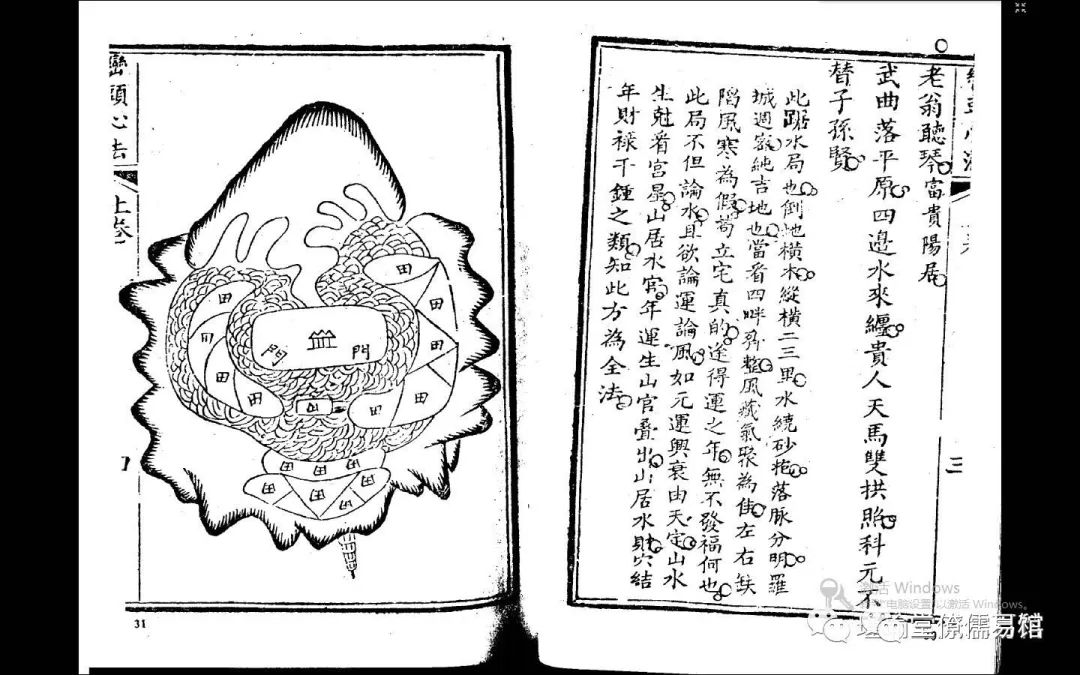 老翁聽琴富貴陽居
武曲落平原四邊水來纏貴人天馬雙拱照科元不
替子孫賢
此踞水局也倒地橫木縱橫二三里水繞砂抱落脉分明羅
城週密純吉地也當看四畔齊整風藏氣聚為佳左右缺
陷風寒為假苟立宅真的途得運之年無不發福何也
此局不但論水且欲論運論風如元運興衰由天定山水
生尅看宮星山居水宮年運生山官叠出山居水財穴結
年財祿千鍾之類知此方為全法
三
田
田
田
田
田
田
田
田
田
田
門
門
田
田
田
田
田
田
田
巒頭心法
上卷
31
激活 Windows
电脑设置以激活 Windows。
堂僚儒易館